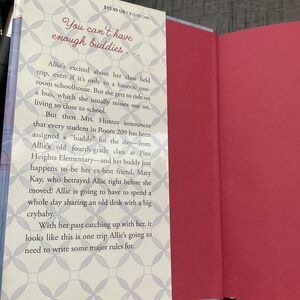 $15.99 US / $19.99 CAN
You can't have
enough buddies . . . .
Allie's excited about her class field
trip, even if it's only to a historic one-
room schoolhouse. But she gets to ride on
a bus, which she usually misses out on,
living so close to school.
But then Mrs. Hunter announces
that every student in Room 209 has been
assigned a "buddy" for the day—from
Allie's old fourth-grade class at Pine
Heights Elementary—and her buddy just
happens to be her ex-best friend, Mary
Kay, who betrayed Allie right before she
moved! Allie is going to have to spend a
whole day sharing an old desk with a big
crybaby.
With her past catching up with her, it
looks like this is one trip Allie's going to
need to write some major rules for.